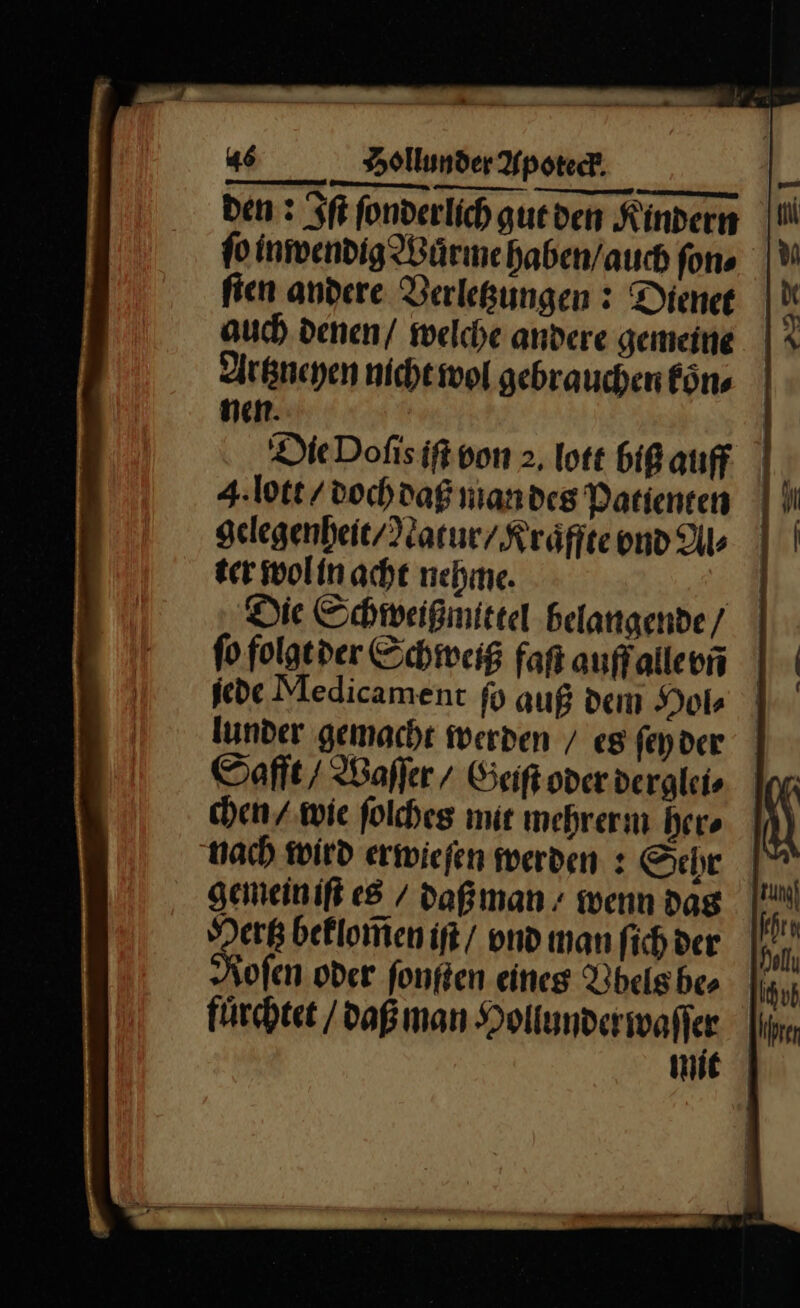 46 Hollunder Apoteck.
den : Iſt ſonderlich gut den Kindern
ſo inwendig Wuͤrme haben/auch ſon⸗
ſten andere Verletzungen : Dienet
auch denen/ welche andere gemeine
Artzneyen nicht wol gebrauchen koͤn⸗
nen.
Die Doſis iſt von 2. lott biß auff
4. lott / doch daß man des Patienten
gelegenheit/Natur/Kraͤffte vnd Al⸗
ter wol in acht nehme.
Die Schweißmittel belangende /
ſo folgt der Schweiß faſt auff alle vñ
jede Medicament ſo auß dem Hol⸗
lunder gemacht werden / es ſey der
Safft / Waſſer / Geiſt oder derglei⸗
chen / wie ſolches mit mehrerm her⸗
nach wird erwieſen werden : Sehr
gemein iſt es / daß man / wenn das
Hertz beklom̃en iſt / vnd man ſich der
Roſen oder ſonſten eines Vbels be⸗
fuͤrchtet / daß man Hollunderwaſſer
mit